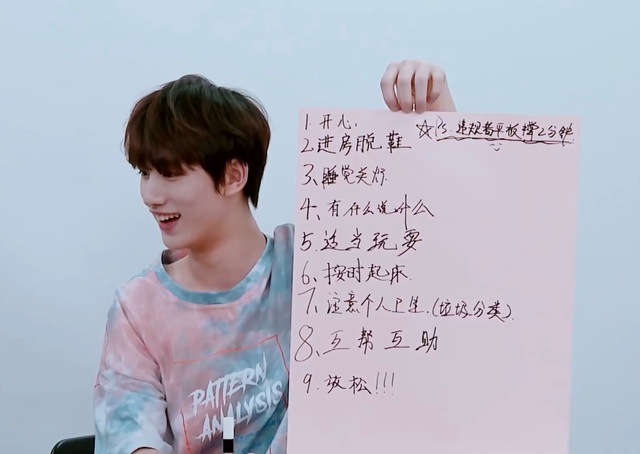 1. 开心.
☆Ps. 违规者平板撑2分钟
2.进房脱鞋
3.睡觉关灯
4、有什么说什么
5.适当玩耍
6.按时起床
7、注意个人卫生.(垃圾分类).
8、互帮互助
9.放松!!!
PATTERN
ANALYSIS